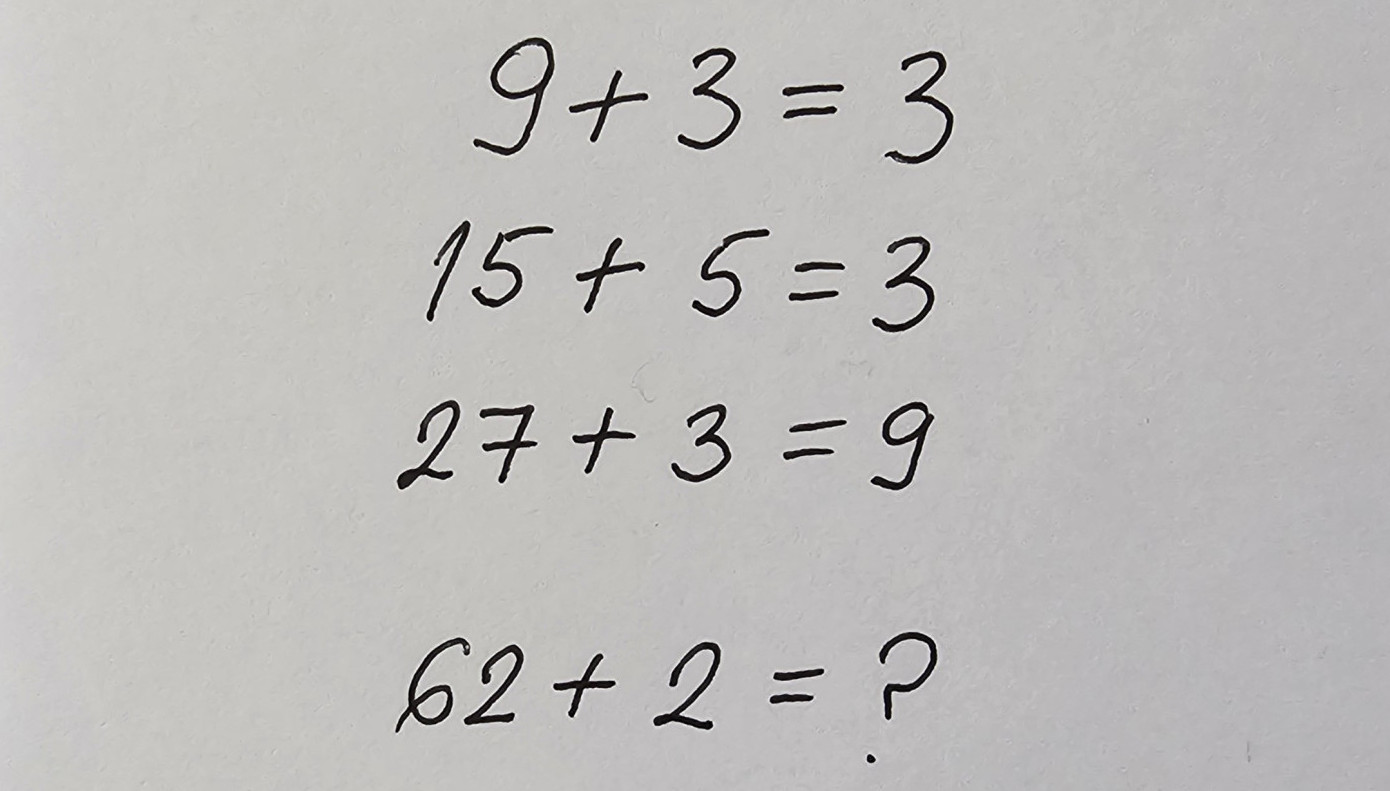 9 + 3 = 3
15 + 5 = 3
27 + 3 = 9
62 + 2 = ?